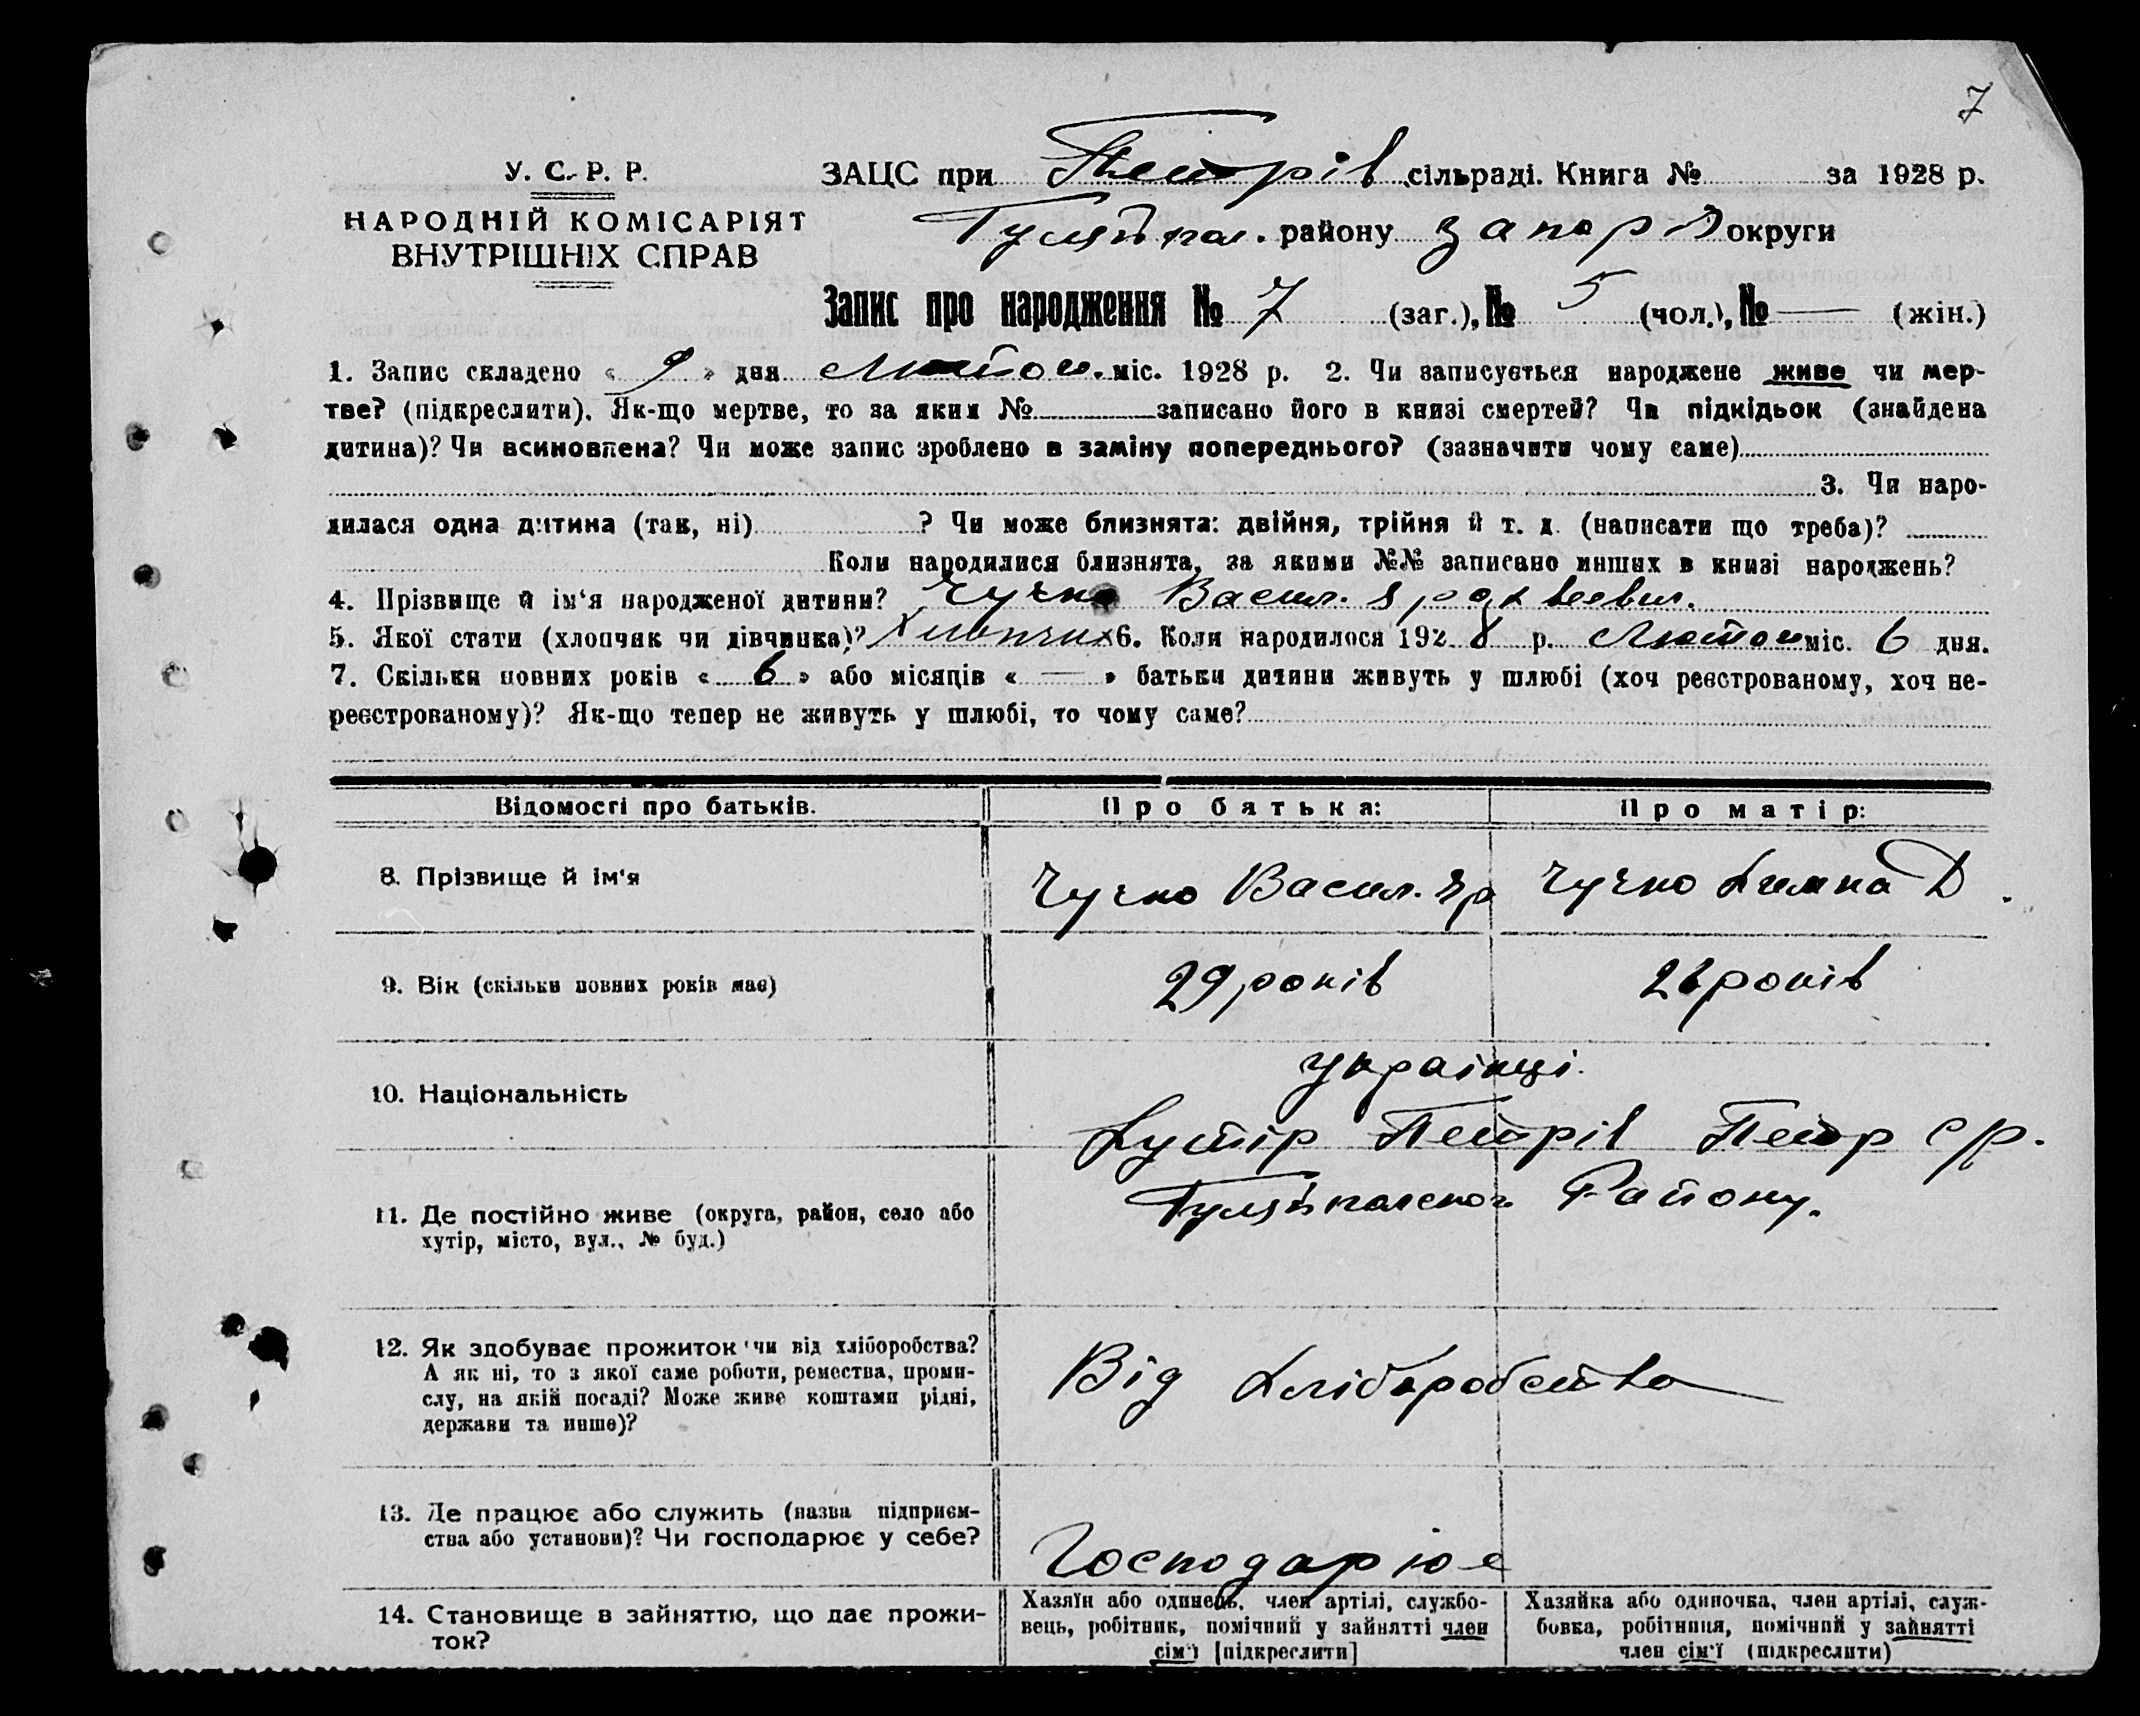 7
У. С. Р. Р.
НАРОДНІЙ КОМІСАРІЯТ
ВНУТРІШНІХ СПРАВ
ЗАЦС при Петорів сільраді. Книга № за 1928 р.
Гуляйпол. району Запор округи
Запис про народження № 7 (заг.), № 5 (чол.), № — (жін.)
1. Запис складено « 9 » дня Лютого міс. 1928 р. 2. Чи записується народжене живе чи мер-
тве? (підкреслити). Як-що мертве, то за яким № записано його в книзі смертей? Чи підкідьок (знайдена
дитина)? Чи всиновлена? Чи може запис зроблено в заміну попереднього? (зазначити чому саме)
3. Чи наро-
дилася одна дитина (так, ні) ? Чи може близнята: двійня, трійня й т. д. (написати що треба)?
Коли народилися близнята, за якими №№ записано инших в книзі народжень?
4. Прізвище й ім'я народженої дитини? Чучко Васил.
5. Якої стати (хлопчик чи дівчинка)? Хлопчик 6. Коли народилося 1928 р. Лютого міс. 6 дня.
7. Скільки повних років « 6 » або місяців « — » батьки дитини живуть у шлюбі (хоч реєстрованому, хоч не-
реєстрованому)? Як-що тепер не живуть у шлюбі, то чому саме?
Відомості про батьків. Про батька: Про матір:
8. Прізвище й ім'я Чучко Васил. Гр Чучко Химка Д.
9. Вік (скільки повних років має) 29 років 26 років
10. Національність українці.
Хутір Петорів Петор с/р.
Гуляйпольског Району.
11. Де постійно живе (округа, район, село або
хутір, місто, вул., № буд.)
12. Як здобуває прожиток чи від хліборобства?
А як ні, то з якої саме роботи, ремества, проми-
слу, на якій посаді? Може живе коштами рідні,
держави та инше)?
Від Хліборобства
13. Де працює або служить (назва підприєм-
ства або установи)? Чи господарює у себе?
Господарює
14. Становище в зайняттю, що дає прожи-
ток?
Хазяїн або одинець, член артілі, службо-
вець, робітник, помічний у зайнятті член
сім'ї [підкреслити]
Хазяйка або одиночка, член артілі, служ-
бовка, робітниця, помічний у зайнятті
член сім'ї (підкреслити)